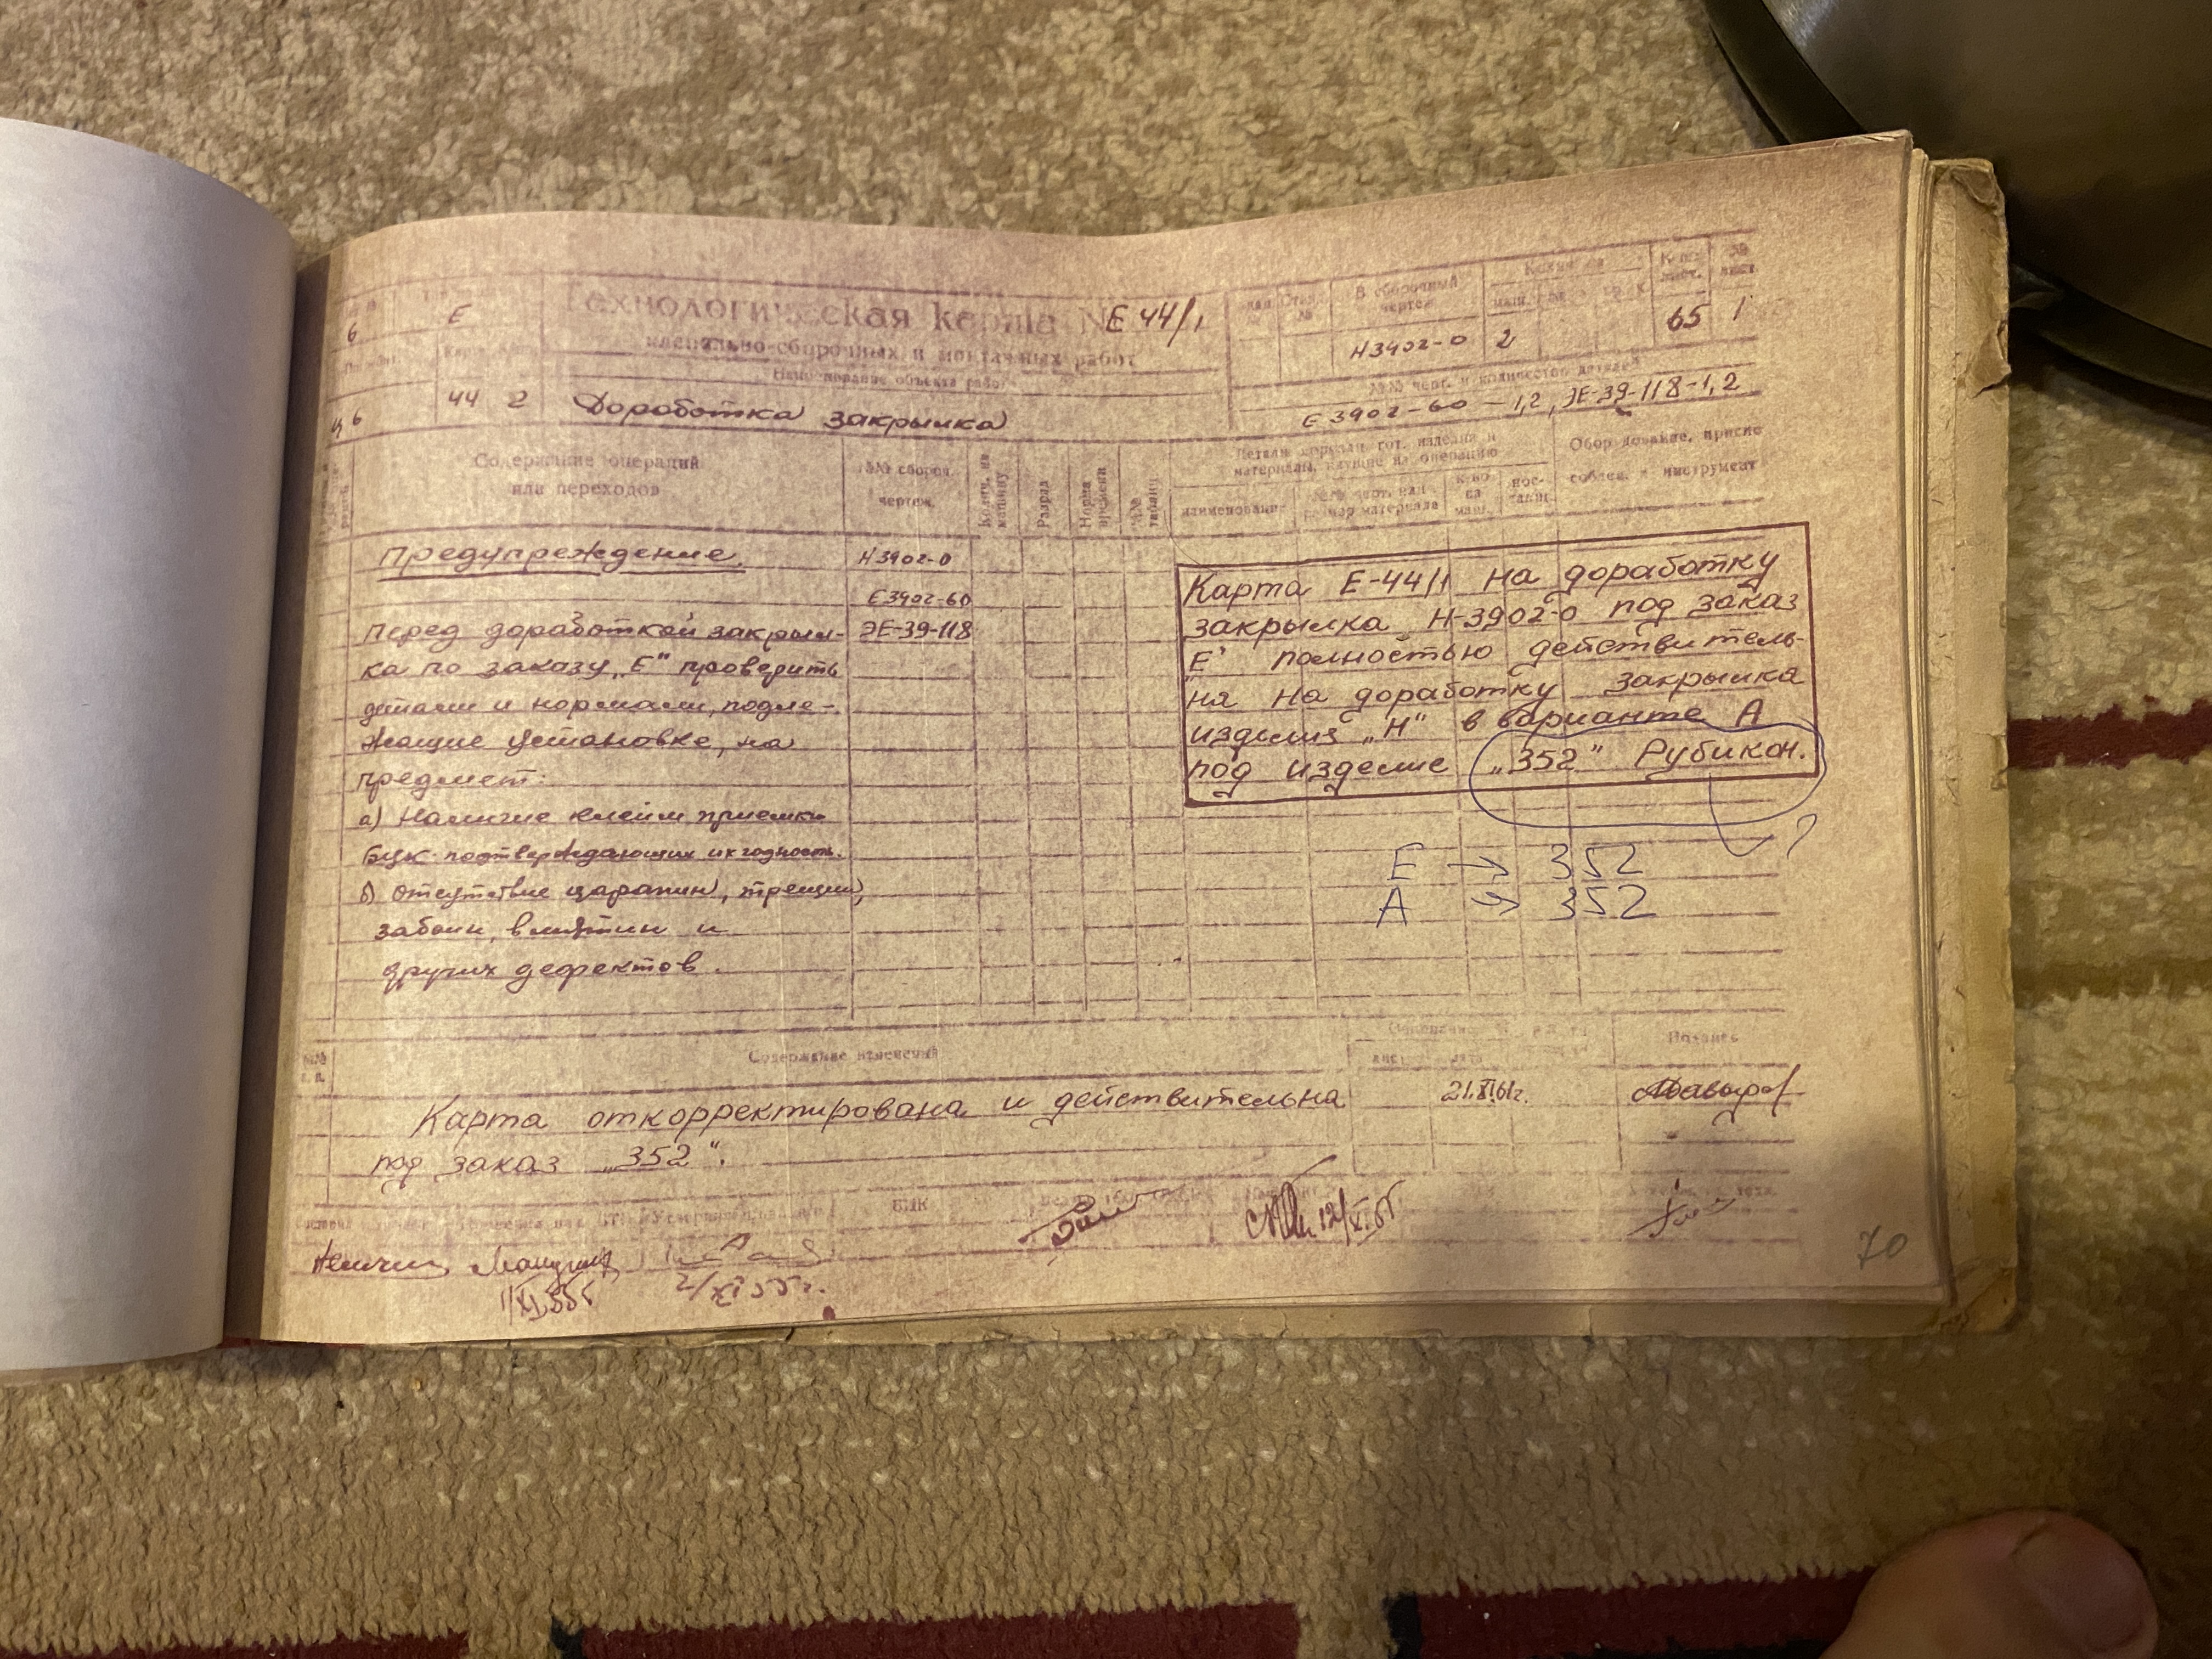 6 Е
Технологическая карта № Е 44/1
клепально-сборочных и монтажных работ
Наименование объекта работ
44 2 Доработка закрылка
В сборочный
чертеж
Н3902-0 2
65 1
Е3902-60-1,2, ЭЕ-39-118-1,2
Содержание операций
или переходов
№№ сбороч.
чертеж.
Разряд
Норма
времени
наименование
Предупреждение.
Н3902-0
Е3902-60
ЭЕ-39-118
Перед доработкой закрыл-
ка по заказу „Е" проверить
детали и нормали, подле-
жащие установке, на
предмет:
а) Наличие клейм приемки
БЦК подтверждающих их годность.
б) Отсутствие царапин, трещин,
забоин, вмятин и
других дефектов.
Карта Е-44/1 на доработку
закрылка Н-3902-0 под заказ
„Е" полностью действитель-
на на доработку закрылка
изделия „Н" в варианте А
под изделие „352" Рубикон.
?
Е → 352
А → 352
Содержание изменений
Карта откорректирована и действительна
под заказ „352".
21.XI.61г.
БЦК
12/XI.55
1/XI.55г
2/XI 55г.
70